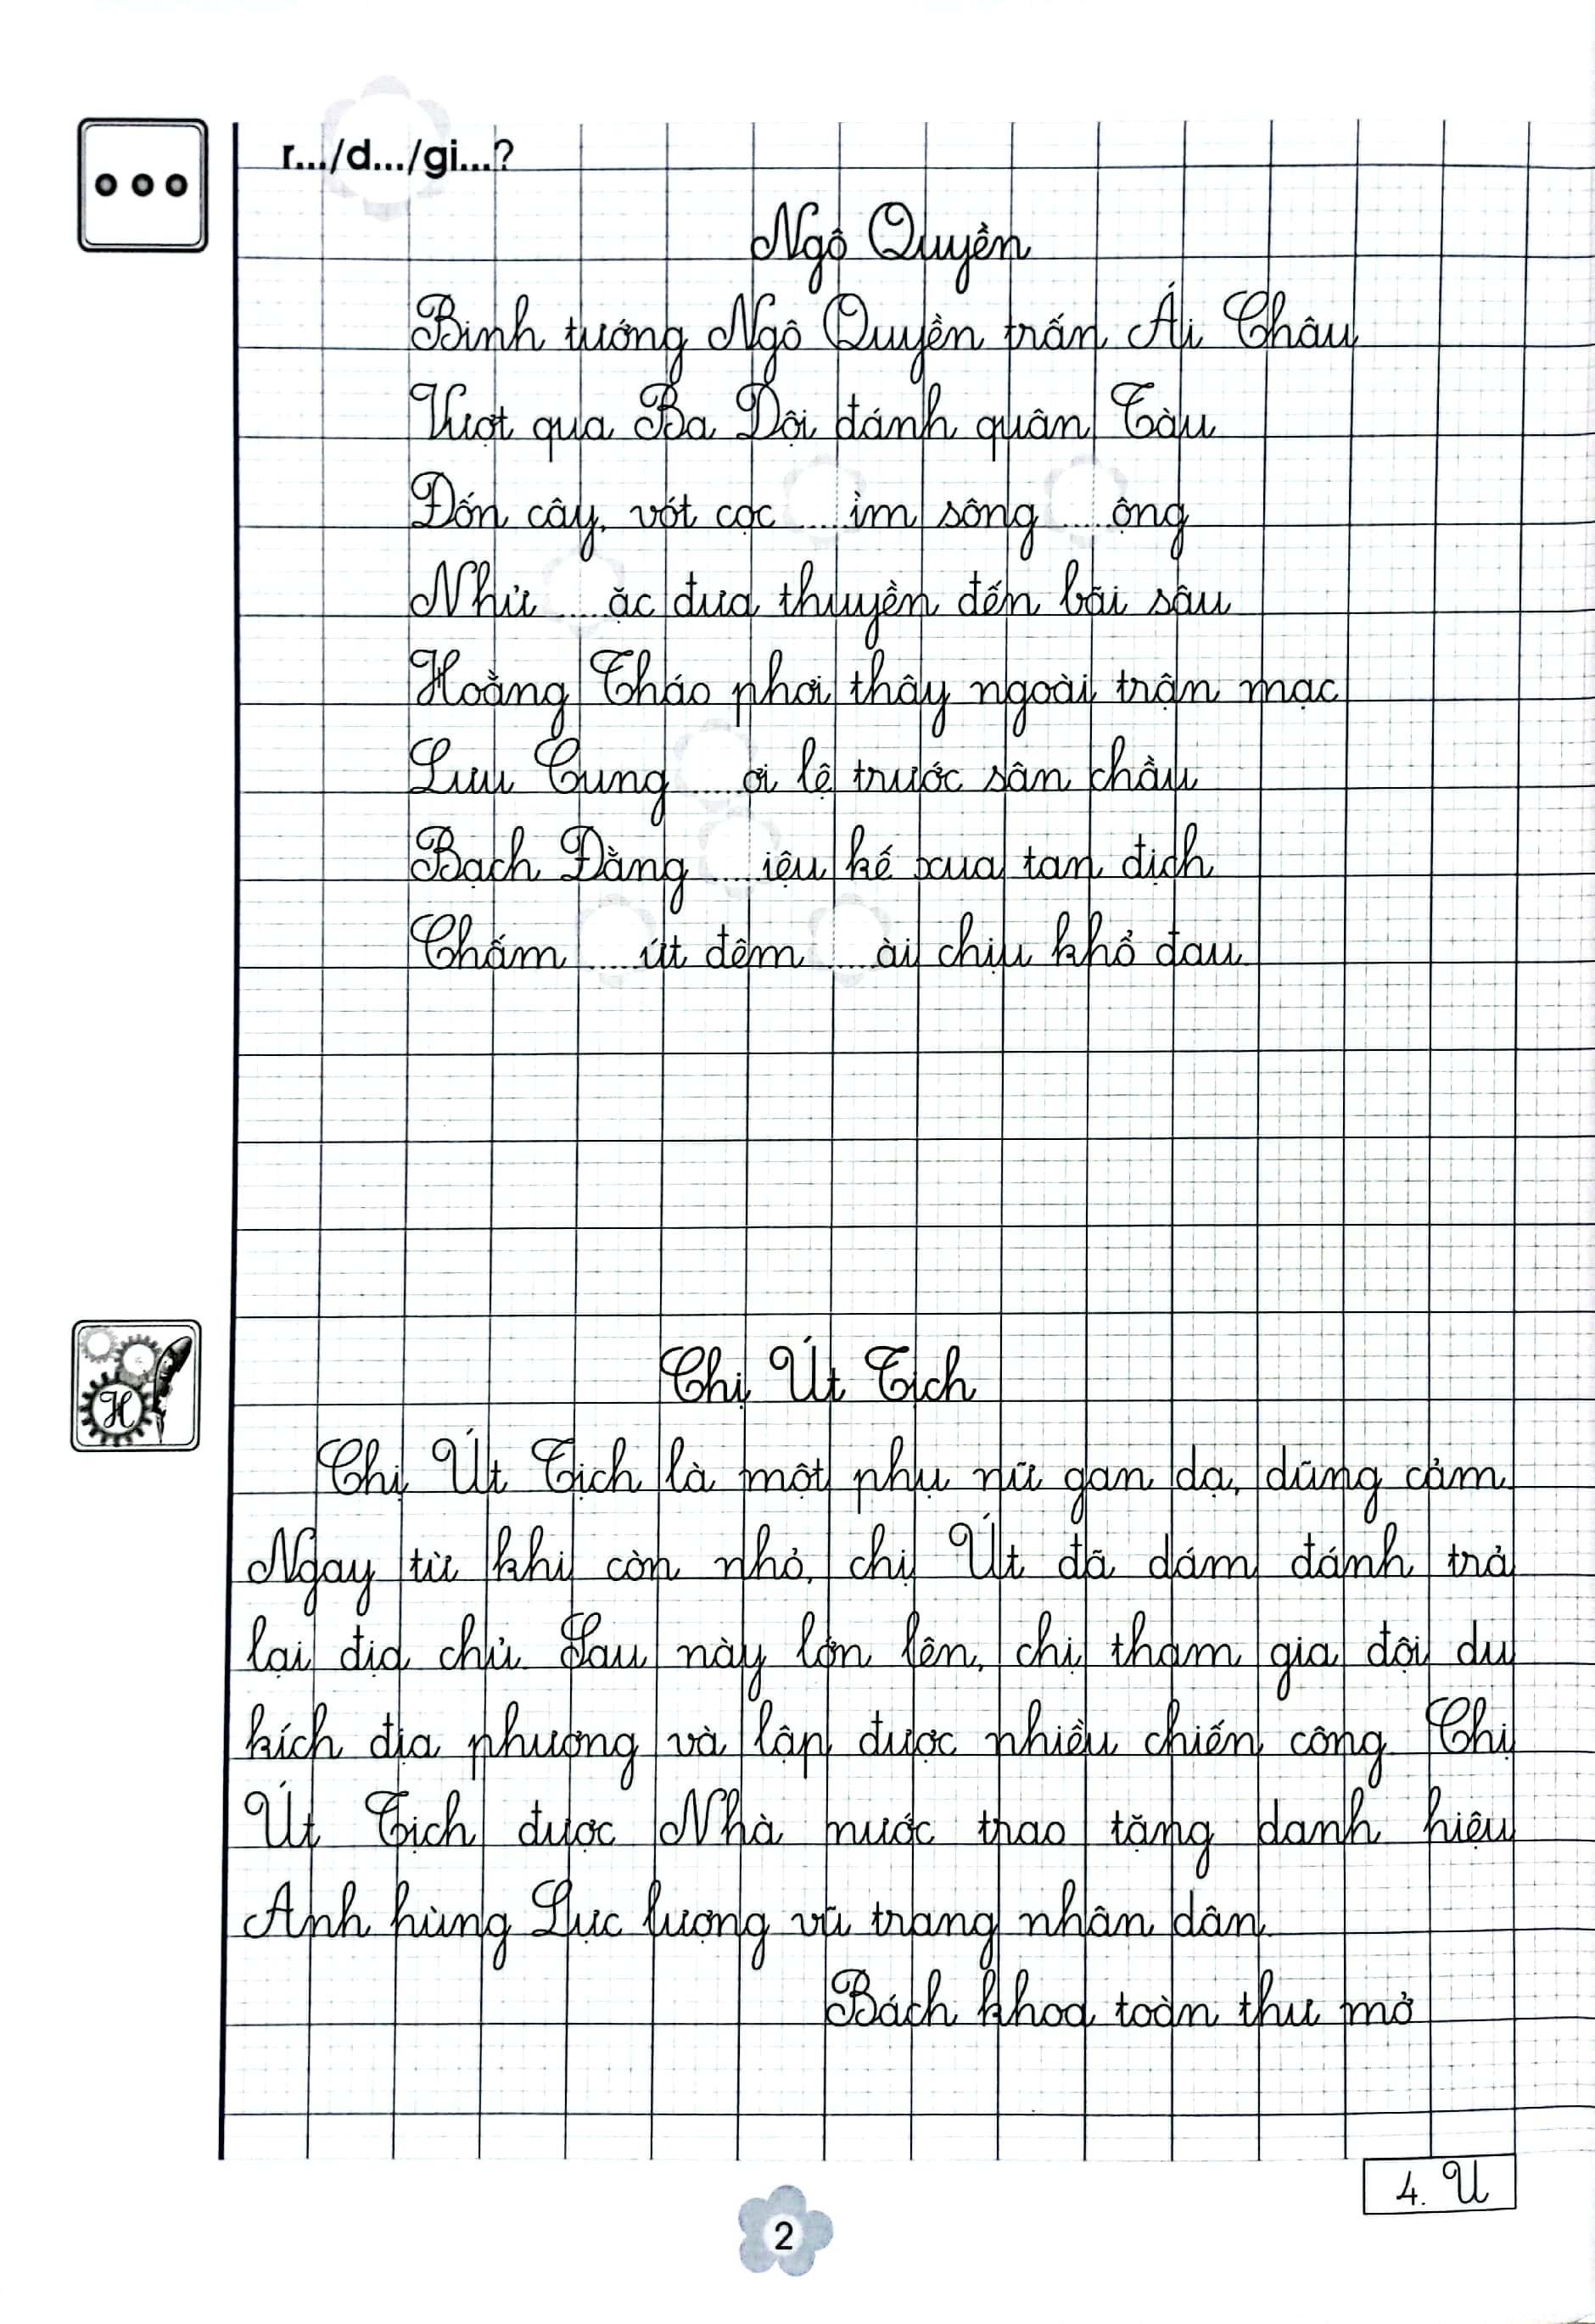 r.../d.../gi...?
Ngô Quyền
Binh tướng Ngô Quyền trấn Ái Châu
Vượt qua Ba Dội đánh quân Tàu
Đốn cây, vót cọc ....ìm sông ....ộng
Nhử ....ặc đưa thuyền đến bãi sâu
Hoằng Tháo phơi thây ngoài trận mạc
Lưu Cung ....ơi lệ trước sân chầu
Bạch Đằng ....iệu kế xua tan địch
Chấm ....ứt đêm ....ài chịu khổ đau.
H
Chị Út Tịch
Chị Út Tịch là một phụ nữ gan dạ, dũng cảm.
Ngay từ khi còn nhỏ, chị Út đã dám đánh trả
lại địa chủ. Sau này lớn lên, chị tham gia đội du
kích địa phương và lập được nhiều chiến công. Chị
Út Tịch được Nhà nước trao tặng danh hiệu
Anh hùng Lực lượng vũ trang nhân dân.
Bách khoa toàn thư mở
4. U
2